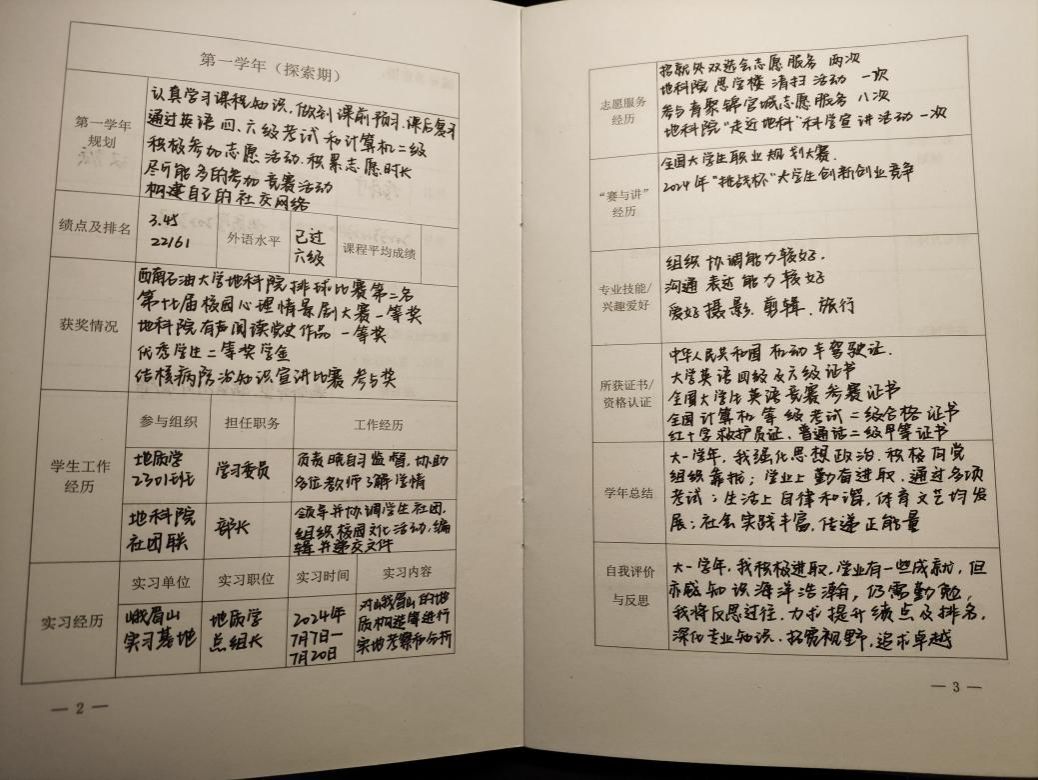 第一学年（探索期）
第一学年
规划
认真学习课程知识、做到课前预习、课后复习
通过英语四、六级考试和计算机二级
积极参加志愿活动、积累志愿时长
尽可能多的参加竞赛活动
构建自己的社交网络
绩点及排名
3.45
22/61
外语水平
已过
六级
课程平均成绩
获奖情况
西南石油大学地科院排球比赛第二名
第十七届校园心理情景剧大赛一等奖
地科院有声阅读党史作品 一等奖
优秀学生二等奖学金
结核病防治知识宣讲比赛 参与奖
学生工作
经历
参与组织
担任职务
工作经历
地质学
2301班
学习委员
负责晚自习监督，协助
各位教师了解学情
地科院
社团联
部长
领导并协调学生社团，
组织校园文化活动，编
辑并递交文件
实习经历
实习单位
实习职位
实习时间
实习内容
峨眉山
实习基地
地质学
点组长
2024年
7月7日—
7月20日
对峨眉山的地
质构造等进行
实地考察和分析
— 2 —
志愿服务
经历
招就处双选会志愿服务 两次
地科院思学楼清扫活动 一次
参与青聚锦官城志愿服务 八次
地科院“走近地科”科学宣讲活动 一次
“赛与讲”
经历
全国大学生职业规划大赛.
2024年“挑战杯”大学生创新创业竞争
专业技能/
兴趣爱好
组织协调能力较好.
沟通表达能力较好
爱好摄影、剪辑、旅行
所获证书/
资格认证
中华人民共和国机动车驾驶证.
大学英语四级及六级证书
全国大学生英语竞赛参赛证书
全国计算机等级考试二级合格证书
红十字救护员证、普通话二级甲等证书
学年总结
大一学年，我强化思想政治、积极向党
组织靠拢；学业上勤奋进取、通过多项
考试；生活上自律和谐，体育文艺均发
展；社会实践丰富，传递正能量
自我评价
与反思
大一学年，我积极进取，学业有一些成就，但
亦感知识海洋浩瀚，仍需勤勉，
我将反思过往，力求提升绩点及排名，
深化专业知识、拓宽视野，追求卓越
— 3 —